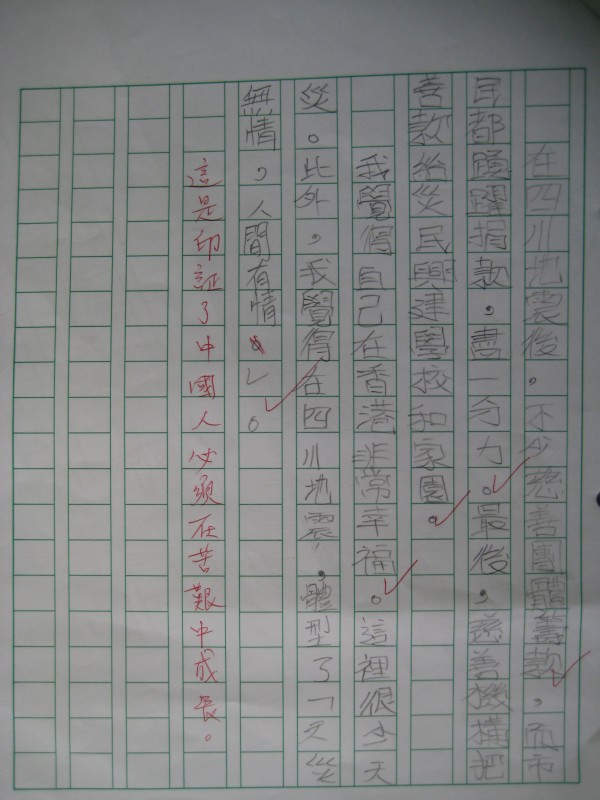 在四川地震後。不少慈善團體籌款,而市
民都踴躍捐款,盡一分力。最後,慈善機構把
善款給災民興建學校和家園。
我覺得自己在香港非常幸福。這裡很少天
災。此外,我覺得在四川地震,體型了「天災
無情,人間有情」。
這是印証了中國人必須在苦艱中成長。